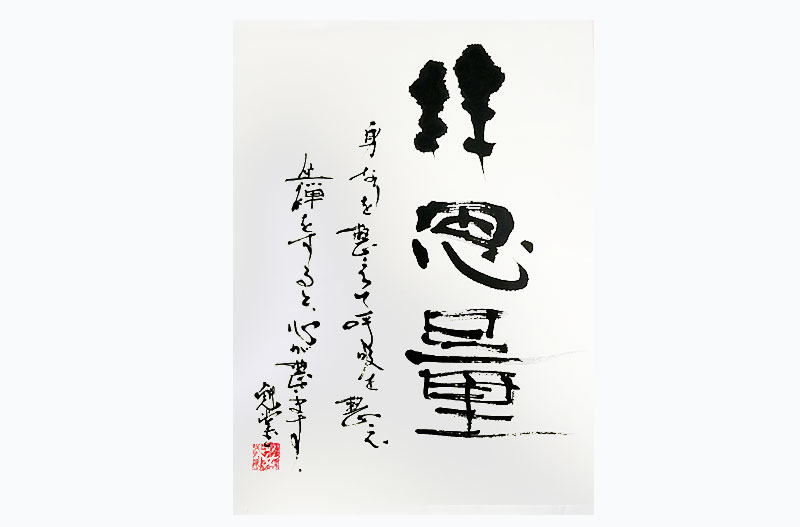 非思量
身なりを整えて呼吸を整え
坐禅をすると、心が整います。